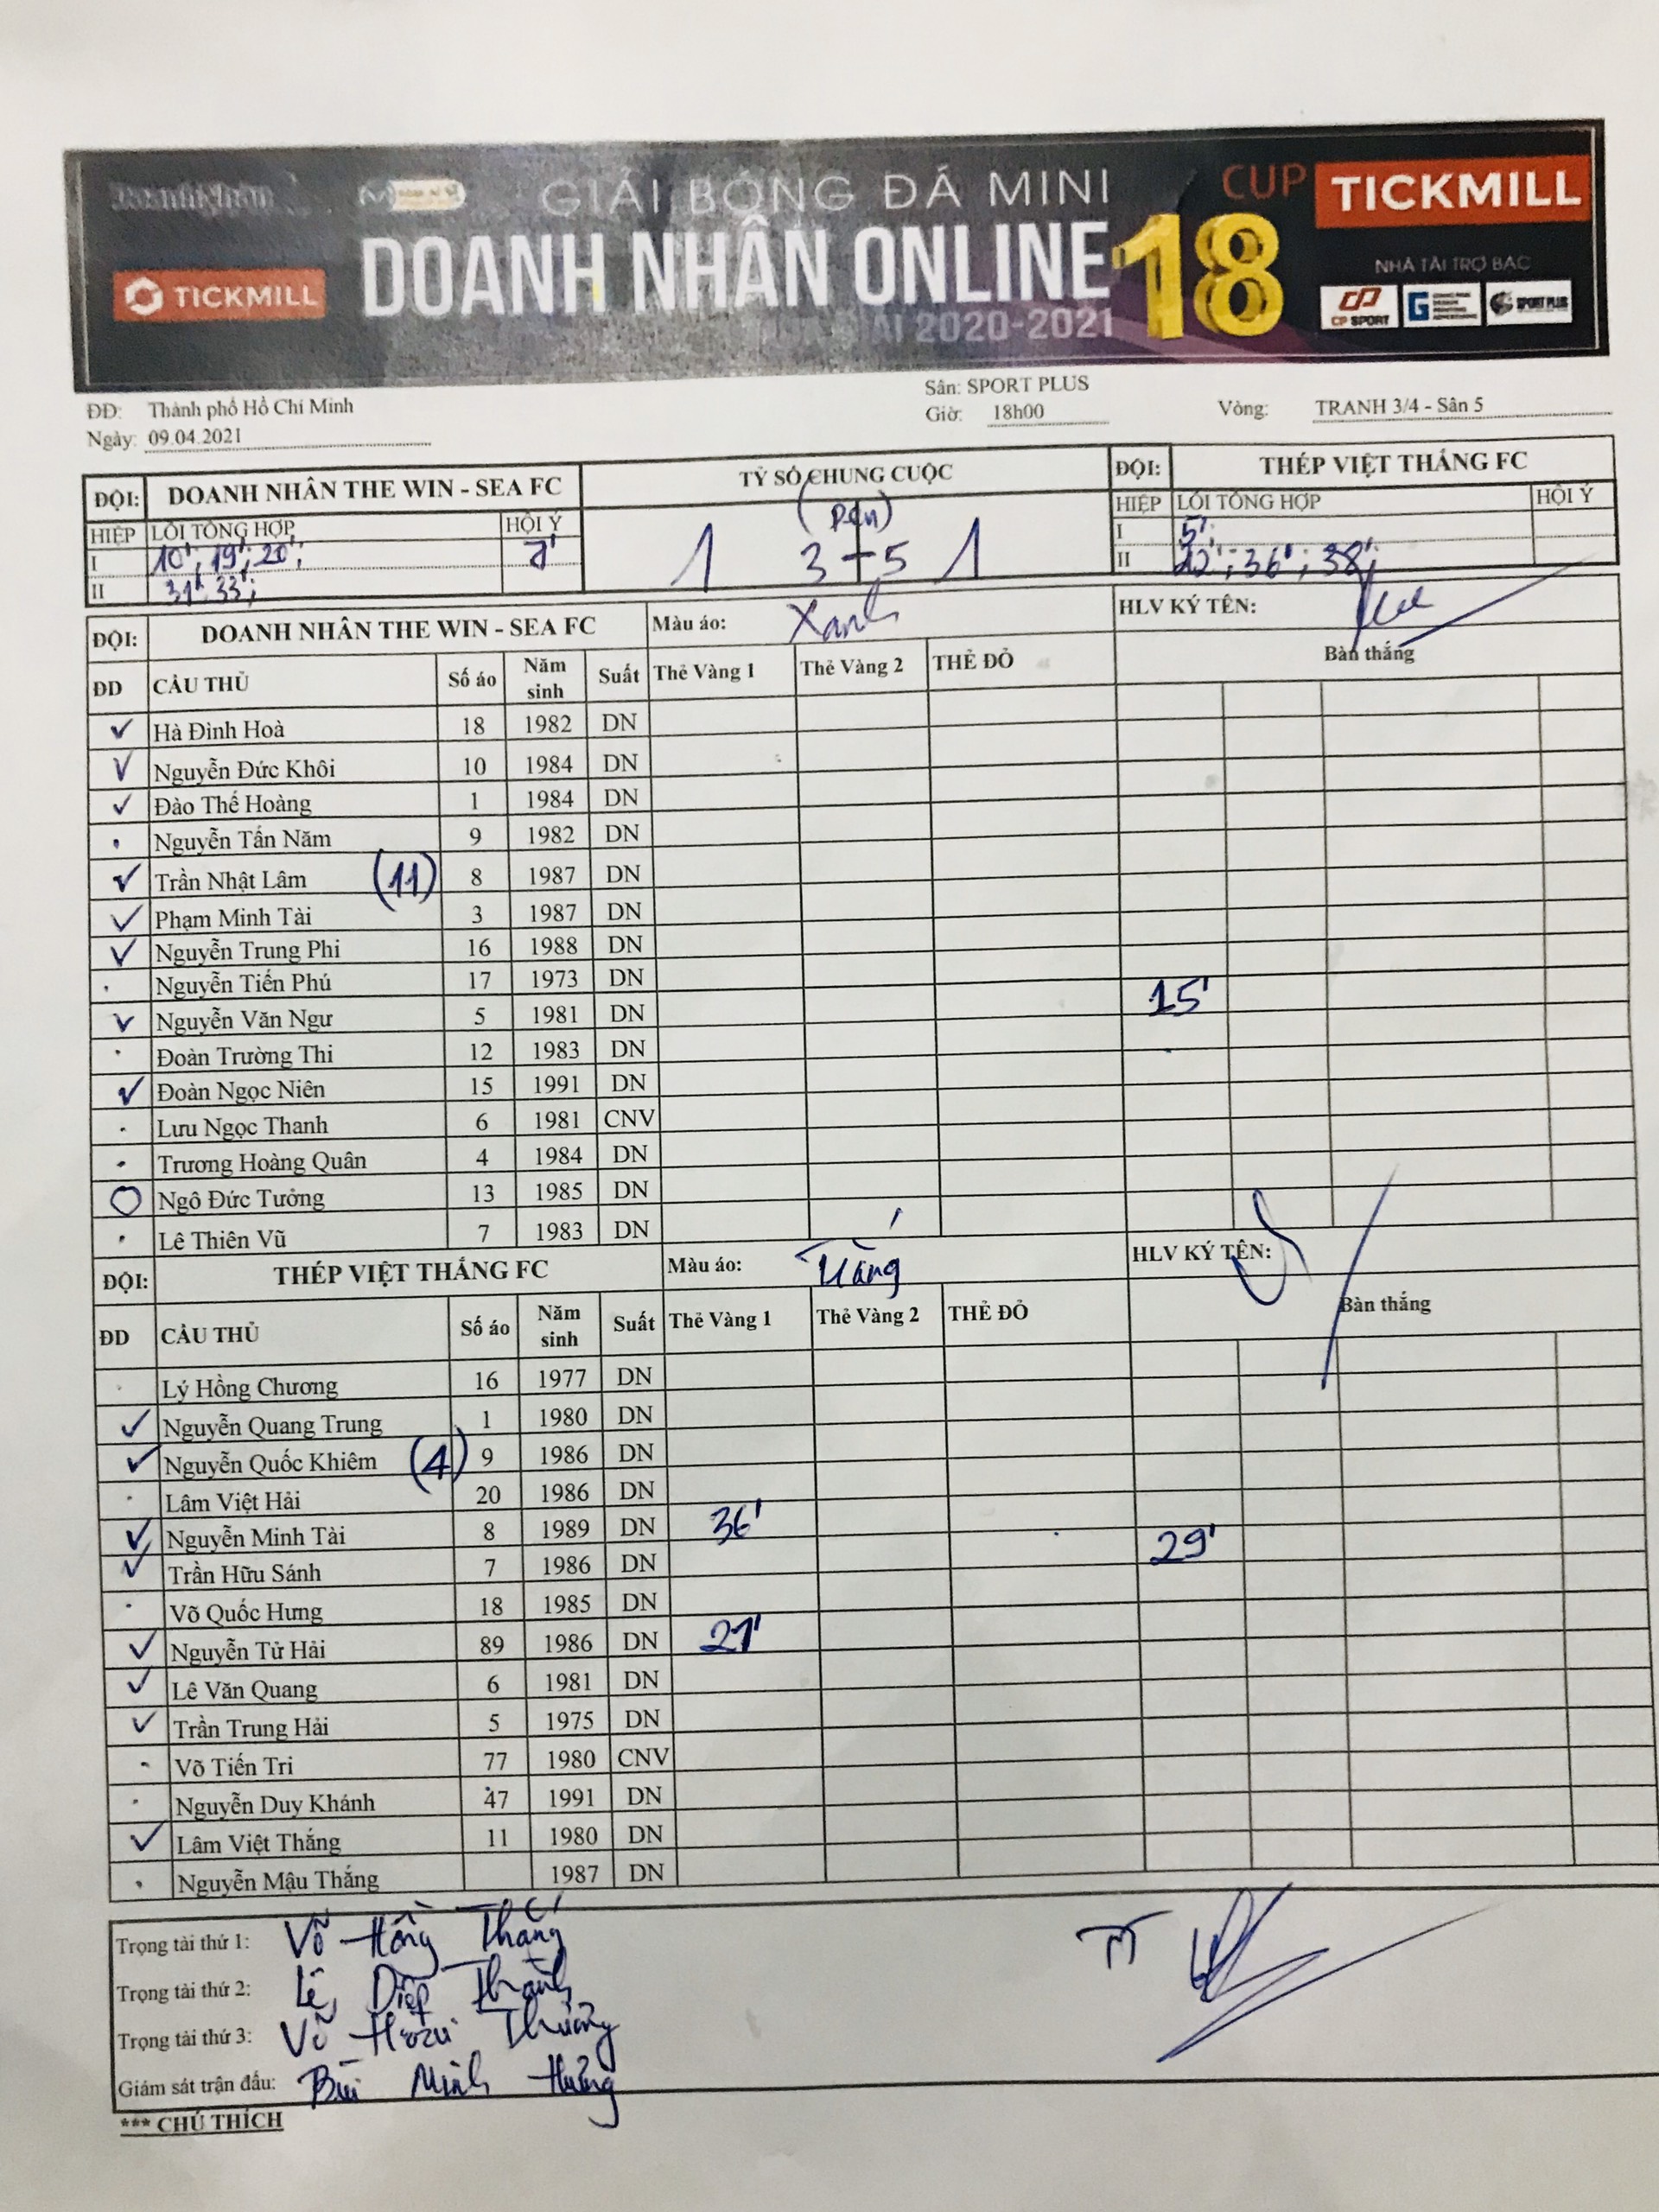 GIẢI BÓNG ĐÁ MINI
CUP TICKMILL
DOANH NHÂN ONLINE 18
TICKMILL
2020-2021
NHÀ TÀI TRỢ BẠC
CP SPORT
SPORT PLUS
ĐĐ: Thành phố Hồ Chí Minh
Sân: SPORT PLUS
Ngày: 09.04.2021
Giờ: 18h00
Vòng: TRANH 3/4 - Sân 5
ĐỘI: DOANH NHÂN THE WIN - SEA FC
TỶ SỐ CHUNG CUỘC
ĐỘI: THÉP VIỆT THẮNG FC
HIỆP LỖI TỔNG HỢP HỘI Ý
(pen)
HIỆP LỖI TỔNG HỢP HỘI Ý
I 10'; 19'; 20';
1 3 - 5 1
I 5';
II 31' 33';
II 36'; 38';
ĐỘI: DOANH NHÂN THE WIN - SEA FC Màu áo: Xanh HLV KÝ TÊN:
ĐD CẦU THỦ Số áo Năm sinh Suất Thẻ Vàng 1 Thẻ Vàng 2 THẺ ĐỎ Bàn thắng
Hà Đình Hoà 18 1982 DN
Nguyễn Đức Khôi 10 1984 DN
Đào Thế Hoàng 1 1984 DN
Nguyễn Tấn Năm 9 1982 DN
Trần Nhật Lâm (11) 8 1987 DN
Phạm Minh Tài 3 1987 DN
Nguyễn Trung Phi 16 1988 DN
Nguyễn Tiến Phú 17 1973 DN
Nguyễn Văn Ngư 5 1981 DN 15'
Đoàn Trường Thi 12 1983 DN
Đoàn Ngọc Niên 15 1991 DN
Lưu Ngọc Thanh 6 1981 CNV
Trương Hoàng Quân 4 1984 DN
Ngô Đức Tưởng 13 1985 DN
Lê Thiên Vũ 7 1983 DN
ĐỘI: THÉP VIỆT THẮNG FC Màu áo: Trắng HLV KÝ TÊN:
ĐD CẦU THỦ Số áo Năm sinh Suất Thẻ Vàng 1 Thẻ Vàng 2 THẺ ĐỎ Bàn thắng
Lý Hồng Chương 16 1977 DN
Nguyễn Quang Trung 1 1980 DN
Nguyễn Quốc Khiêm (4) 9 1986 DN
Lâm Việt Hải 20 1986 DN
Nguyễn Minh Tài 8 1989 DN 36'
Trần Hữu Sánh 7 1986 DN 29'
Võ Quốc Hưng 18 1985 DN
Nguyễn Tử Hải 89 1986 DN 27'
Lê Văn Quang 6 1981 DN
Trần Trung Hải 5 1975 DN
Võ Tiến Tri 77 1980 CNV
Nguyễn Duy Khánh 47 1991 DN
Lâm Việt Thắng 11 1980 DN
Nguyễn Mậu Thắng 1987 DN
Trọng tài thứ 1: Võ Hồng Thắng
Trọng tài thứ 2: Lê Diệp Thành
Trọng tài thứ 3: Võ Thưởng
Giám sát trận đấu: Bùi Minh Hưng
TT
*** CHÚ THÍCH